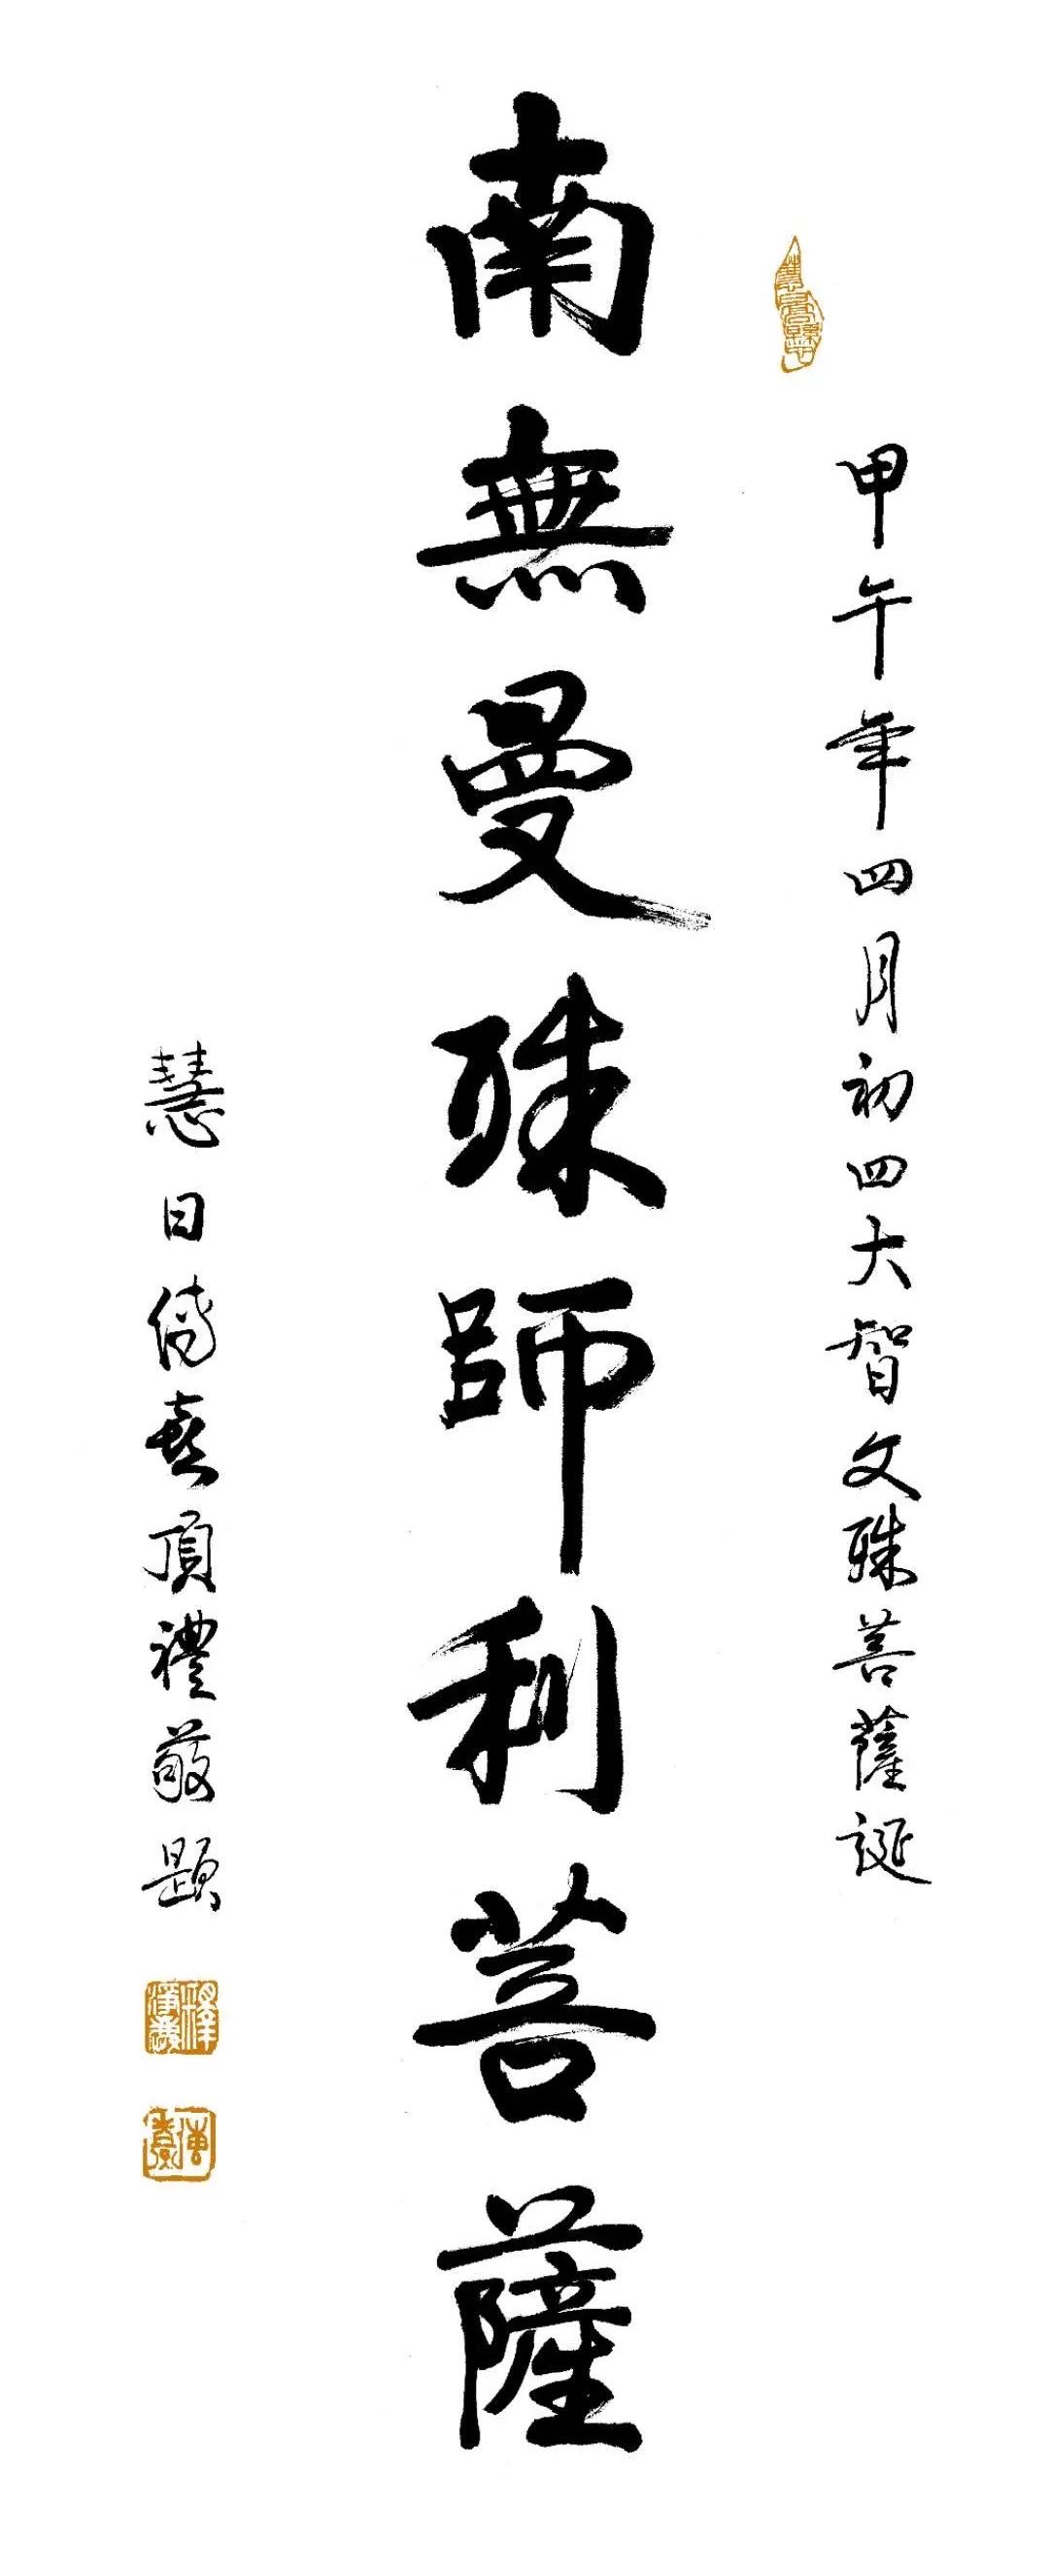 甲午年四月初四大智文殊菩薩誕
南無曼殊師利菩薩
慧日傳熹頂禮敬題